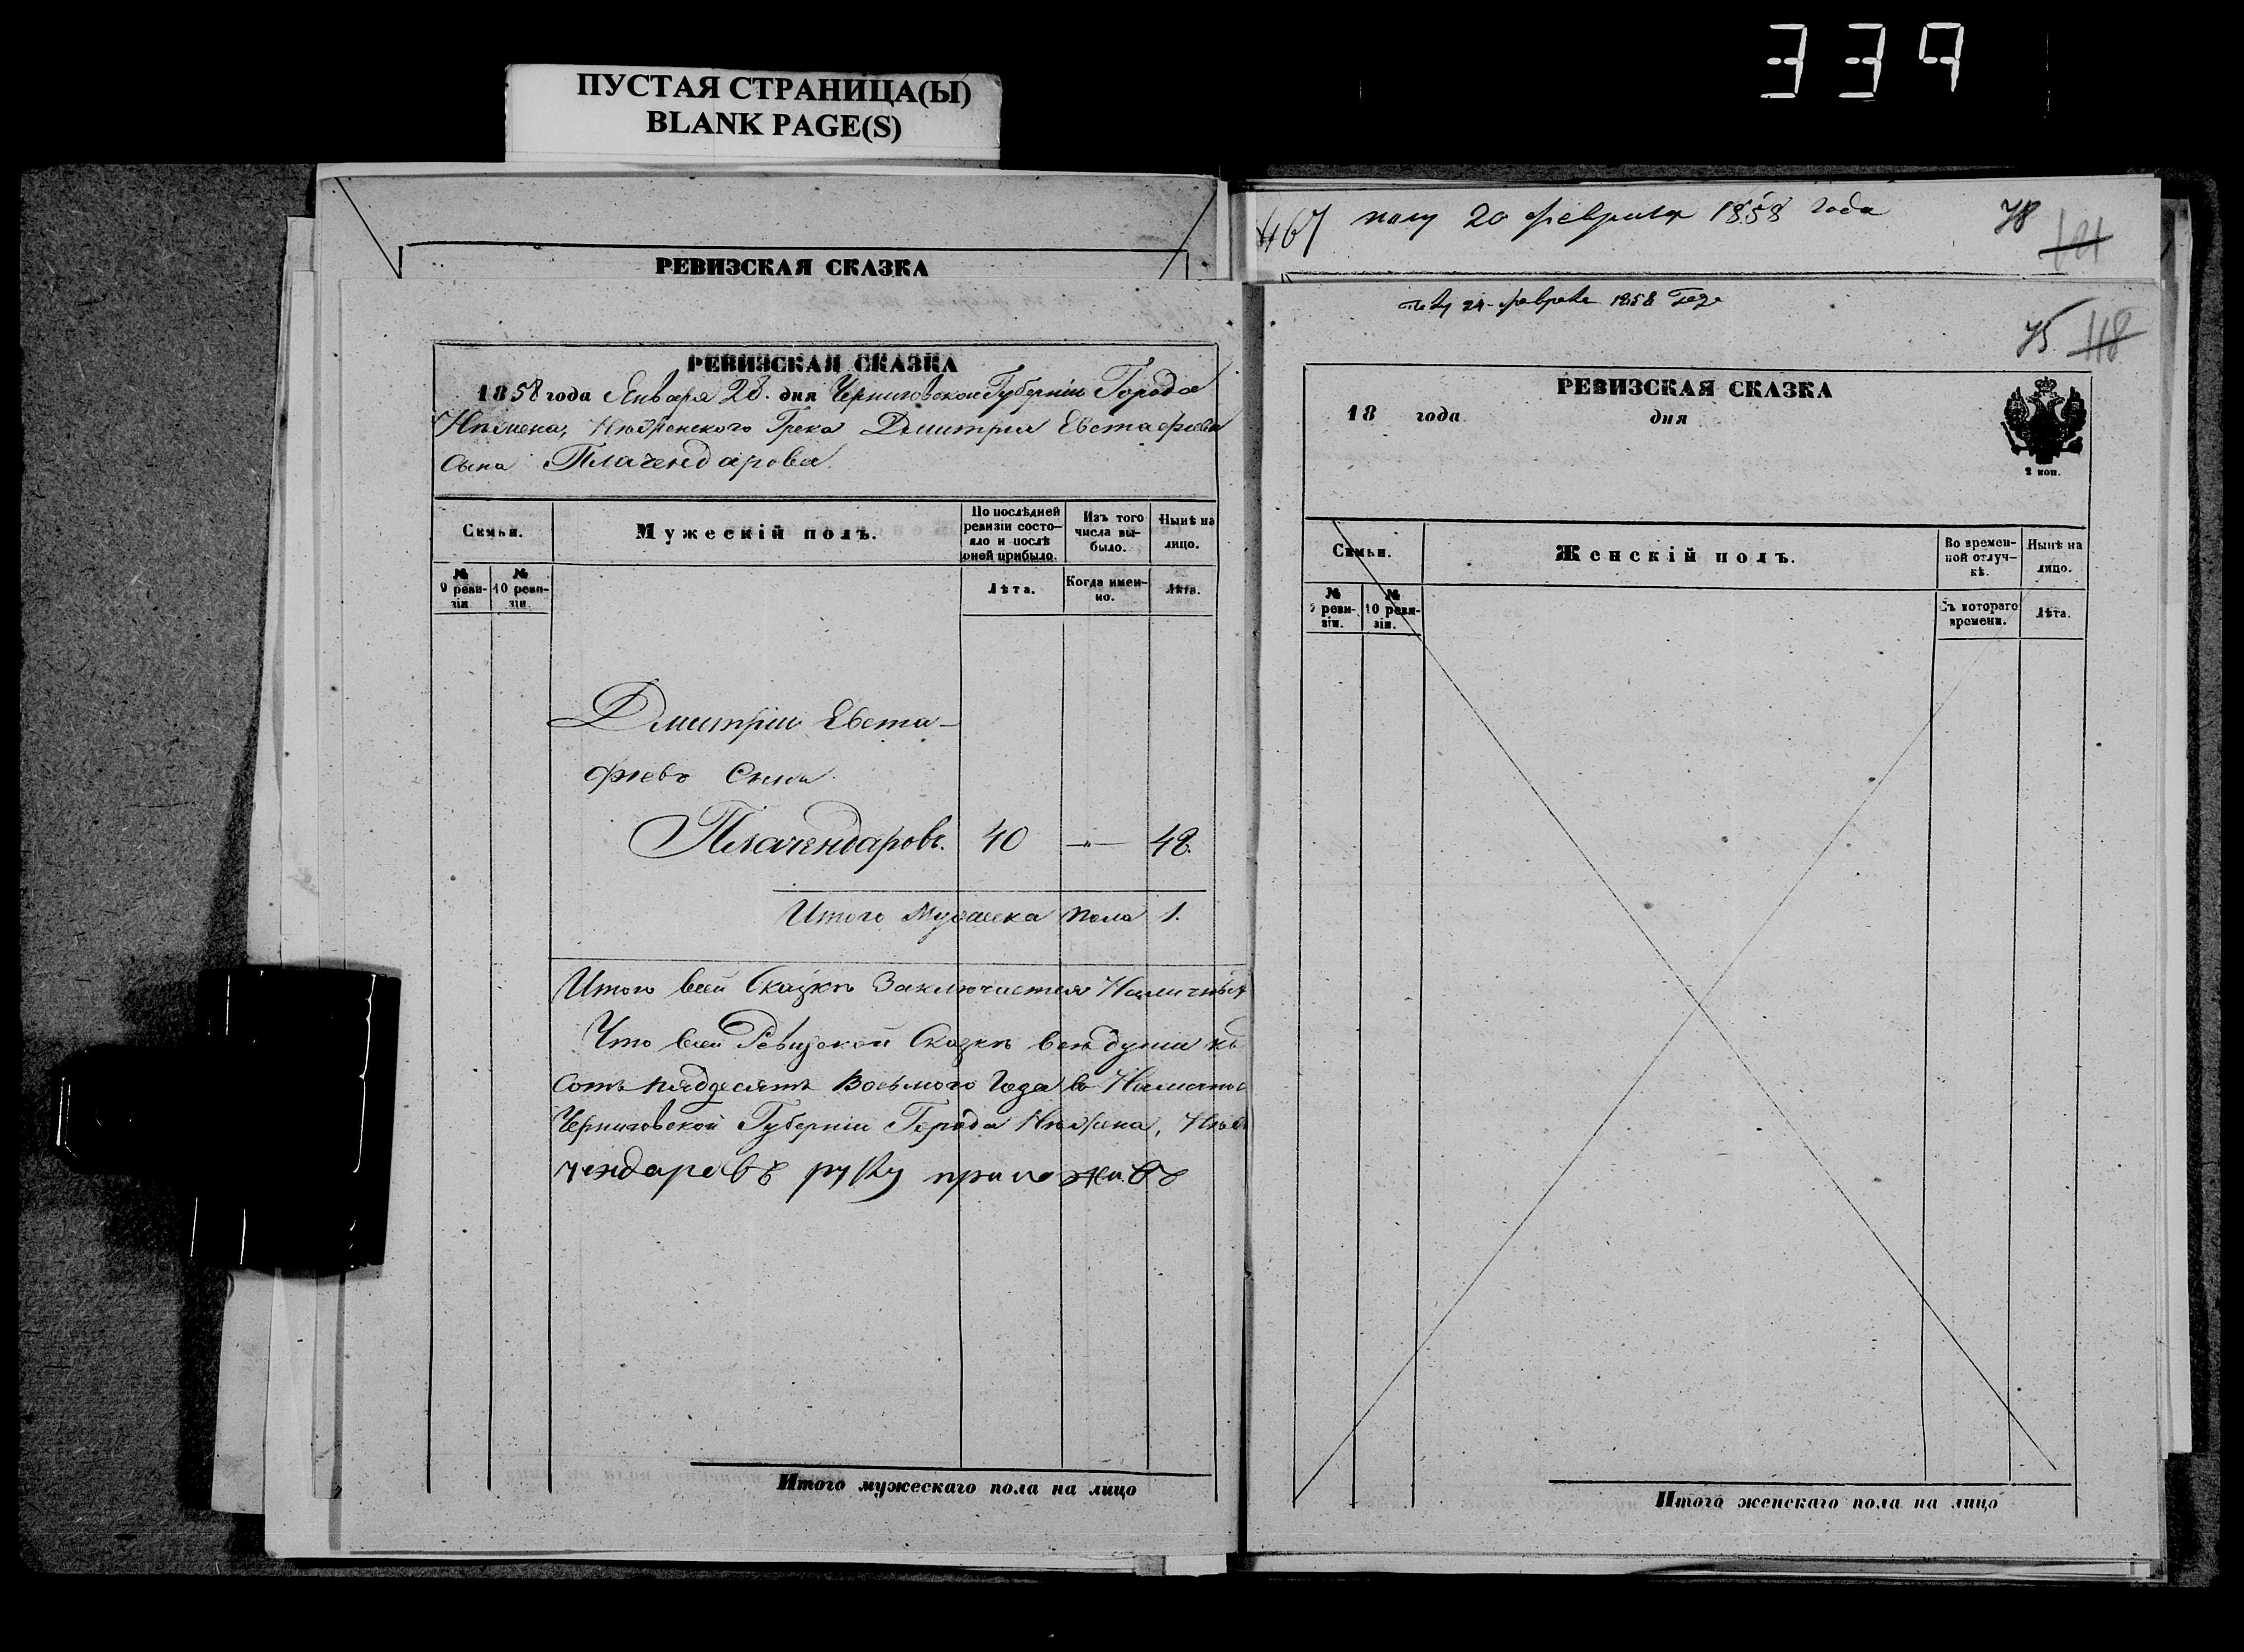 339
ПУСТАЯ СТРАНИЦА(Ы)
BLANK PAGE(S)
РЕВИЗСКАЯ СКАЗКА
РЕВИЗСКАЯ СКАЗКА
1858 года Января 28. дня Черниговской Губернiи Города
Нѣжена, Нѣжинского Грека Дмитрия Евстафiева
сына Плачендарова.
Семьи.
Мужескiй полъ.
По послѣдней ревизiи состояло и послѣ оней прибыло.
Изъ того числа выбыло.
Нынѣ на лицо.
№ 9 ревизiи.
№ 10 ревизiи.
Лѣта.
Когда именно.
Лѣта.
Дмитрiй Евста-
фiевъ Сынъ
Плачендаровъ. 40 —„— 48.
Итого Мужеска пола 1.
Итого всей Сказкѣ Заключается Наличныхъ
Что всей Ревизской Сказкѣ всѣ души
сотъ пядесятъ Восьмого Года въ
Черниговской Губернiи Города Нѣжена,
чендаровъ руку приложивъ
Итого мужескаго пола на лицо
467 20 февраля 1858 года 78
121
24 февраля 1858 Года
75 118
РЕВИЗСКАЯ СКАЗКА
18 года дня
2 коп.
Семьи.
Женскiй полъ.
Во временной отлучкѣ.
Нынѣ на лицо.
№ 9 ревизiи.
№ 10 ревизiи.
Съ котораго времени.
Лѣта.
Итого женскаго пола на лицо